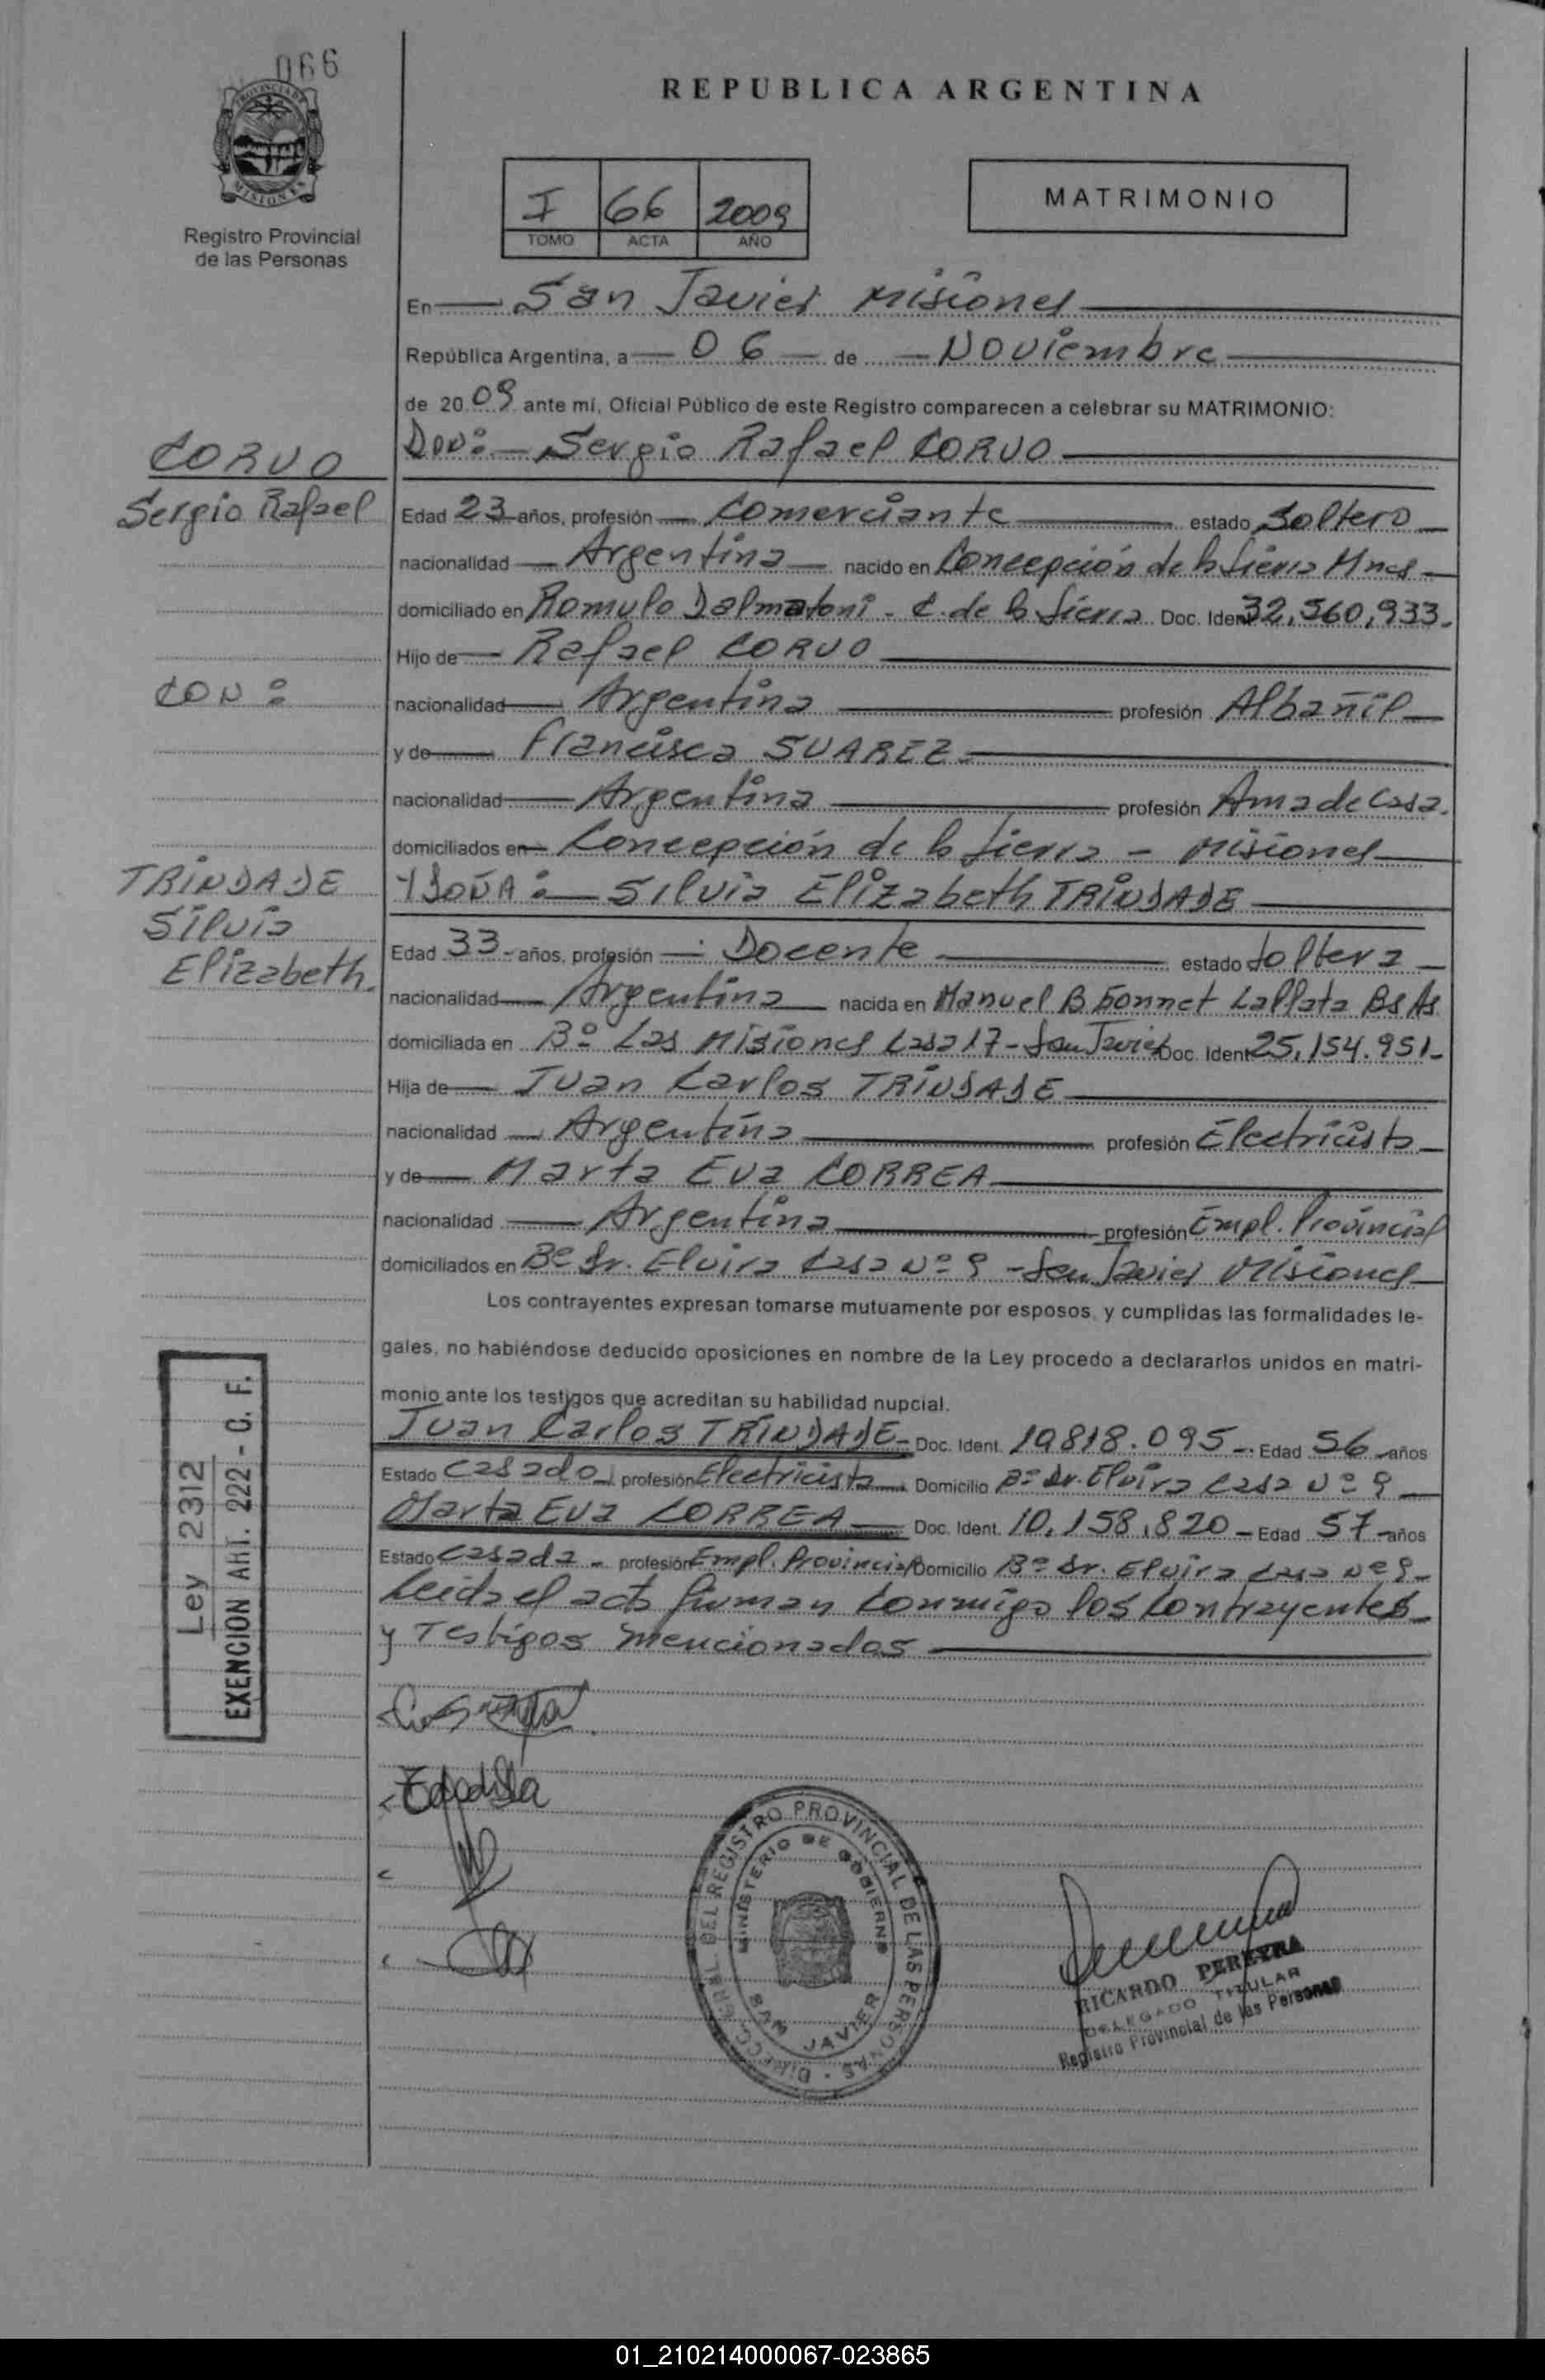 066
REPUBLICA ARGENTINA
PROVINCIA DE
MISIONES
Registro Provincial
de las Personas
I 66 2009
TOMO ACTA AÑO
MATRIMONIO
En San Javier Misiones
República Argentina, a 06 de Noviembre
de 20 09 ante mí, Oficial Público de este Registro comparecen a celebrar su MATRIMONIO:
CORVO
Don: Sergio Rafael CORVO
Sergio Rafael
Edad 23 años, profesión Comerciante estado Soltero
nacionalidad Argentina nacido en Concepción de la Sierra Mnes
domiciliado en Romulo Dalmatoni - C. de la Sierra Doc. Ident 32,560,933.
Hijo de Rafael CORVO
CON:
nacionalidad Argentina profesión Albañil
y de Francisca SUAREZ
nacionalidad Argentina profesión Ama de Casa.
domiciliados en Concepción de la Sierra - Misiones
TRINDADE
Silvia
Elizabeth.
Y DOÑA: Silvia Elizabeth TRINDADE
Edad 33 - años, profesión Docente estado Soltera
nacionalidad Argentina nacida en Manuel B Gonnet La Plata Bs As
domiciliada en Bº Las Misiones Casa 17 - San Javier Doc. Ident 25,154.951-
Hija de Juan Carlos TRINDADE
nacionalidad Argentina profesión Electricista
y de Marta Eva CORREA
nacionalidad Argentina profesión Empl. Provincial
domiciliados en Bº Dr. Elvira Casa Nº 9 - San Javier Misiones
Los contrayentes expresan tomarse mutuamente por esposos, y cumplidas las formalidades le-
gales, no habiéndose deducido oposiciones en nombre de la Ley procedo a declararlos unidos en matri-
monio ante los testigos que acreditan su habilidad nupcial.
Juan Carlos TRINDADE - Doc. Ident. 10818.095 - Edad 56 años
Estado Casado profesión Electricista Domicilio Bº Dr. Elvira Casa Nº 9
Marta Eva CORREA Doc. Ident. 10,158,820 - Edad 57 años
Estado Casada - profesión Empl. Provincial Domicilio Bº Dr. Elvira Casa Nº 9
Leida el acta firman conmigo los contrayentes
y Testigos mencionados
Ley 2312
EXENCION ART. 222 - C. F.
DIRECC. GRAL. DEL REGISTRO PROVINCIAL DE LAS PERSONAS
MINISTERIO DE GOBIERNO
SAN JAVIER
RICARDO PEREYRA
DELEGADO TITULAR
Registro Provincial de las Personas
01_210214000067-023865